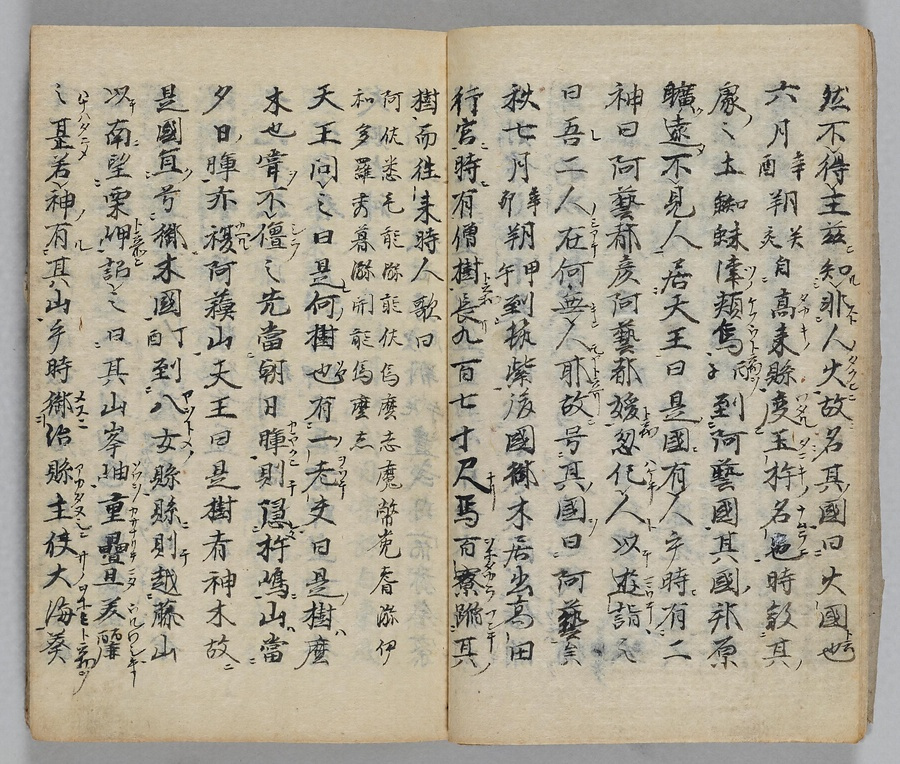 然不得主茲知非人火故名其國曰火國也
六月辛酉朔癸亥自高来縣渡玉杵名邑時敦其
處之土蜘蛛津頬焉丙子到阿藝國其國郊原
曠遠不見人居天王曰是國有人乎時有二
神曰阿藝都彦阿藝都媛忽化人以遊詣之
曰吾二人在何無人耶故号其國曰阿藝矣
秋七月辛卯朔甲午到筑紫後國御木居出高田
行宮時有僧樹長九百七十尺焉百寮蹈其
樹而往来時人歌曰
阿佐志毛能瀰能佐烏麼志魔幣菟耆瀰伊
和多羅秀暮瀰開能烏麼志
天王問之曰是何樹也有一老夫曰是樹麼
木也嘗不僵之先當朝日暉則隠杵嶋山當
夕日暉亦覆阿蘓山天王曰是樹者神木故
是國宜号御木國丁酉到八女縣縣則越藤山
以南望粟岬詔之曰其山峯岫重疊且美麗
之甚若神有其山乎時御沼縣主佐大海葵